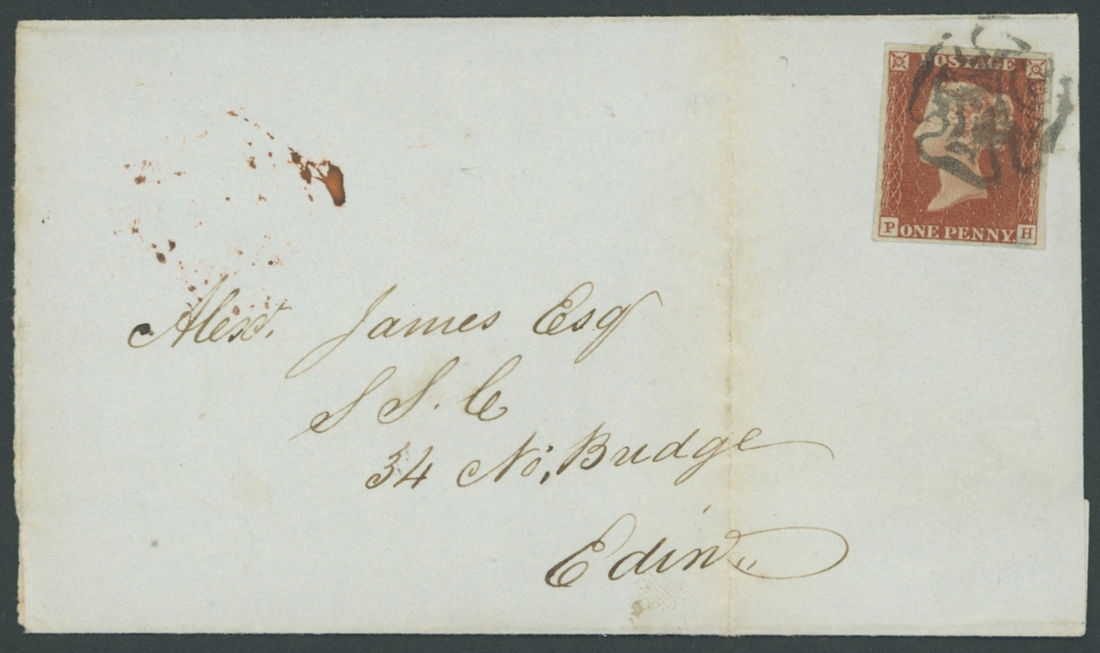 POSTAGE
P ONE PENNY. H
Alexr. James Esq
S S. C
34 No, Bridge
Edinr